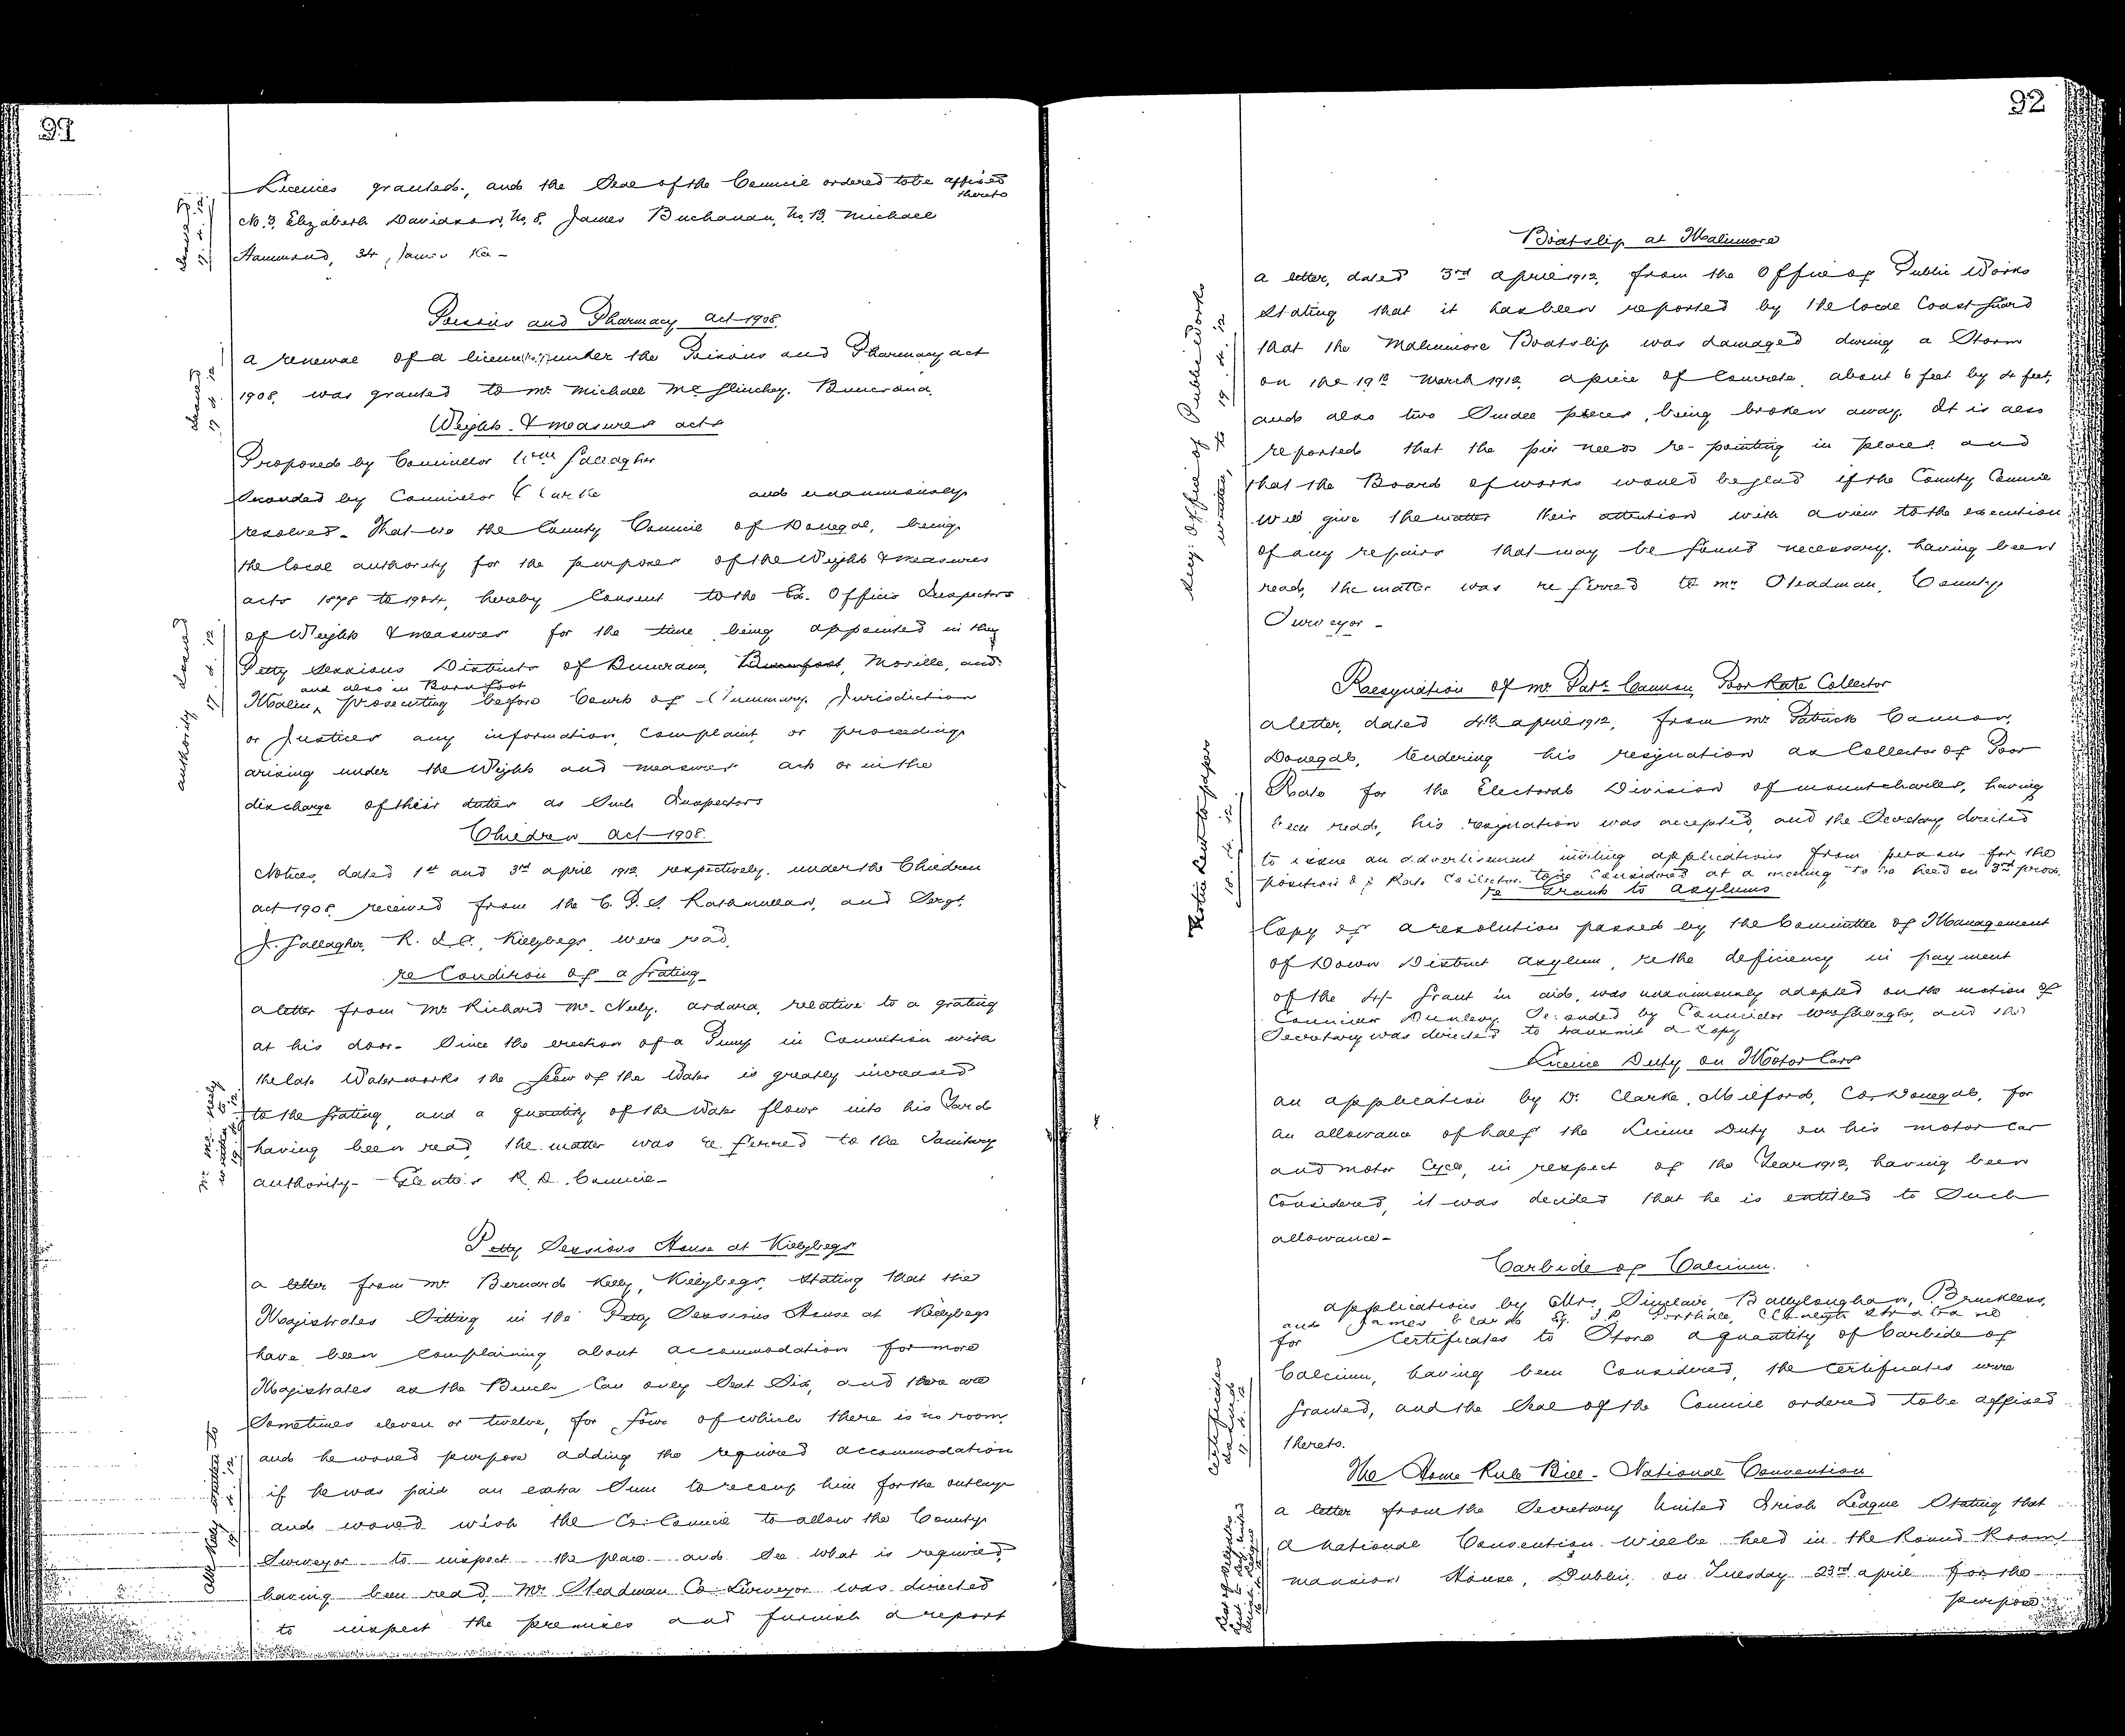 91
Licences granted, and the Seal of the Council ordered to be affixed
thereto
No. 3, Elizabeth Davidson, No. 8, James Buchanan, No. 13, Michael
Hammond, 34, James
Issued
17.4.12
Poisons and Pharmacy act 1908.
a renewal of a licence under the Poisons and Pharmacy act
1908, was granted to Mr. Michael McGlinchey, Buncrana.
Issued
17.4.12
Weights & measures acts
Proposed by Councillor Wm Gallagher
Seconded by Councillor Clarke and unanimously
resolved - That we the County Council of Donegal, being
the local authority for the purposes of the Weights & measures
acts 1878 to 1904, hereby Consent to the Ex. Officio Inspectors
of Weights & measures for the time being appointed in the
Petty Sessions Districts of Buncrana, Burnfoot, Moville, and
and also in Burnfoot
Malin, prosecuting before Courts of Summary Jurisdiction
or Justices any information, complaint or proceedings
arising under the Weights and measures acts or in the
discharge of their duties as Such Inspectors
authority issued
17.4.12
Children act 1908.
Notices, dated 1st and 3rd april 1912 respectively, under the Children
act 1908 received from the C. P. S. Rathmullan, and Sergt.
J. Gallagher, R. I. C., Killybegs, were read.
re Condition of a Grating
a letter from Mr Richard Mc. Neely, ardara, relative to a grating
at his door - Since the erection of a Pump in Connection with
the late Waterworks the flow of the Water is greatly increased
to the Grating, and a quantity of the Water flows into his Yard
having been read, the matter was referred to the Sanitary
authority - Glenties R. D. Council -
Mr. Mc. Neely
written to
19.4.12
Petty Sessions House at Killybegs
a letter from Mr. Bernard Kelly, Killybegs, stating that the
Magistrates Sitting in the Petty Sessions House at Killybegs
have been complaining about accommodation for more
Magistrates as the Bench Can only Seat Six, and there are
Sometimes eleven or twelve, for four of which there is no room,
and he would purpose adding the required accommodation
if he was paid an extra Sum to recoup him for the outlay
and would wish the Co. Council to allow the County
Surveyor to inspect the place and See what is required,
having been read, Mr. Steadman Co. Surveyor was directed
to inspect the premises and furnish a report
Mr Kelly written to
19.4.12
92
Boatslip at Malinmore
a letter, dated 3rd april 1912, from the Office of Public Works
stating that it has been reported by the local Coast Guard
that the Malinmore Boatslip was damaged during a Storm
on the 19th March 1912, a piece of Concrete, about 6 feet by 4 feet,
and also two Small pieces, being broken away. It is also
reported that the pier needs re-pointing in places and
that the Board of works would be glad if the County Council
will give the matter their attention with a view to the execution
of any repairs that may be found necessary, having been
read, the matter was referred to Mr Steadman, County
Surveyor -
Secy: Office of Public Works
written to 19.4.12
Resignation of Mr Patk Cannon, Poor Rate Collector
a letter, dated 4th april 1912, from Mr Patrick Cannon,
Donegal, tendering his resignation as Collector of Poor
Rate for the Electoral Division of mountcharles, having
been read, his resignation was accepted, and the Secretary directed
to issue an advertisement inviting applications from persons for the
position of Rate Collector, to be Considered at a meeting to be held on 3rd prox.
Notice sent to papers
18.4.12
re Grant to Asylums
Copy of a resolution passed by the Committee of Management
of Down District asylum, re the deficiency in payment
of the 4/- Grant in aid, was unanimously adopted on the motion of
Councillor Dunlevy Seconded by Councillor Wm Gallagher, and the
Secretary was directed to transmit a copy
Licence Duty on Motor Cars
an application by Dr. Clarke, Milford, Co. Donegal, for
an allowance of half the Licence Duty on his motor Car
and motor Cycle, in respect of the Year 1912, having been
Considered, it was decided that he is entitled to Such
allowance -
Carbide of Calcium.
applications by Mrs. Sinclair, Ballyloughan, Bruckless,
and James
for Certificates to Store a quantity of Carbide of
Calcium, having been Considered, the Certificates were
Granted, and the Seal of the Council ordered to be affixed
thereto.
Certificates
17.4.12
The Home Rule Bill - National Convention
a letter from the Secretary United Irish League Stating that
a national Convention will be held in the Round Room,
mansion House, Dublin, on Tuesday 23rd april for the
purpose
List of Delegates
sent to Secy. United
Irish League